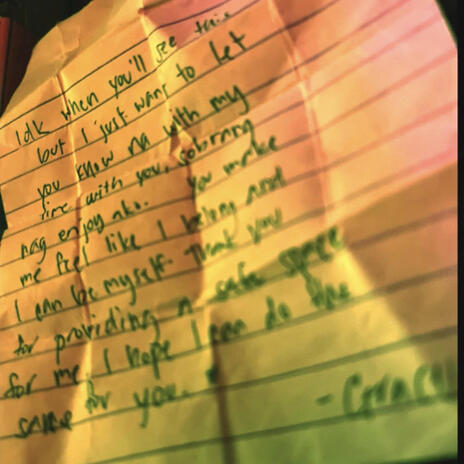 Idk when you'll see this
but I just want to let
you know na with my
time with you, sobrang
nag enjoy ako. You make
me feel like I belong and
I can be myself. Thank you
for providing a safe space
for me. I hope I can do the
same for you.